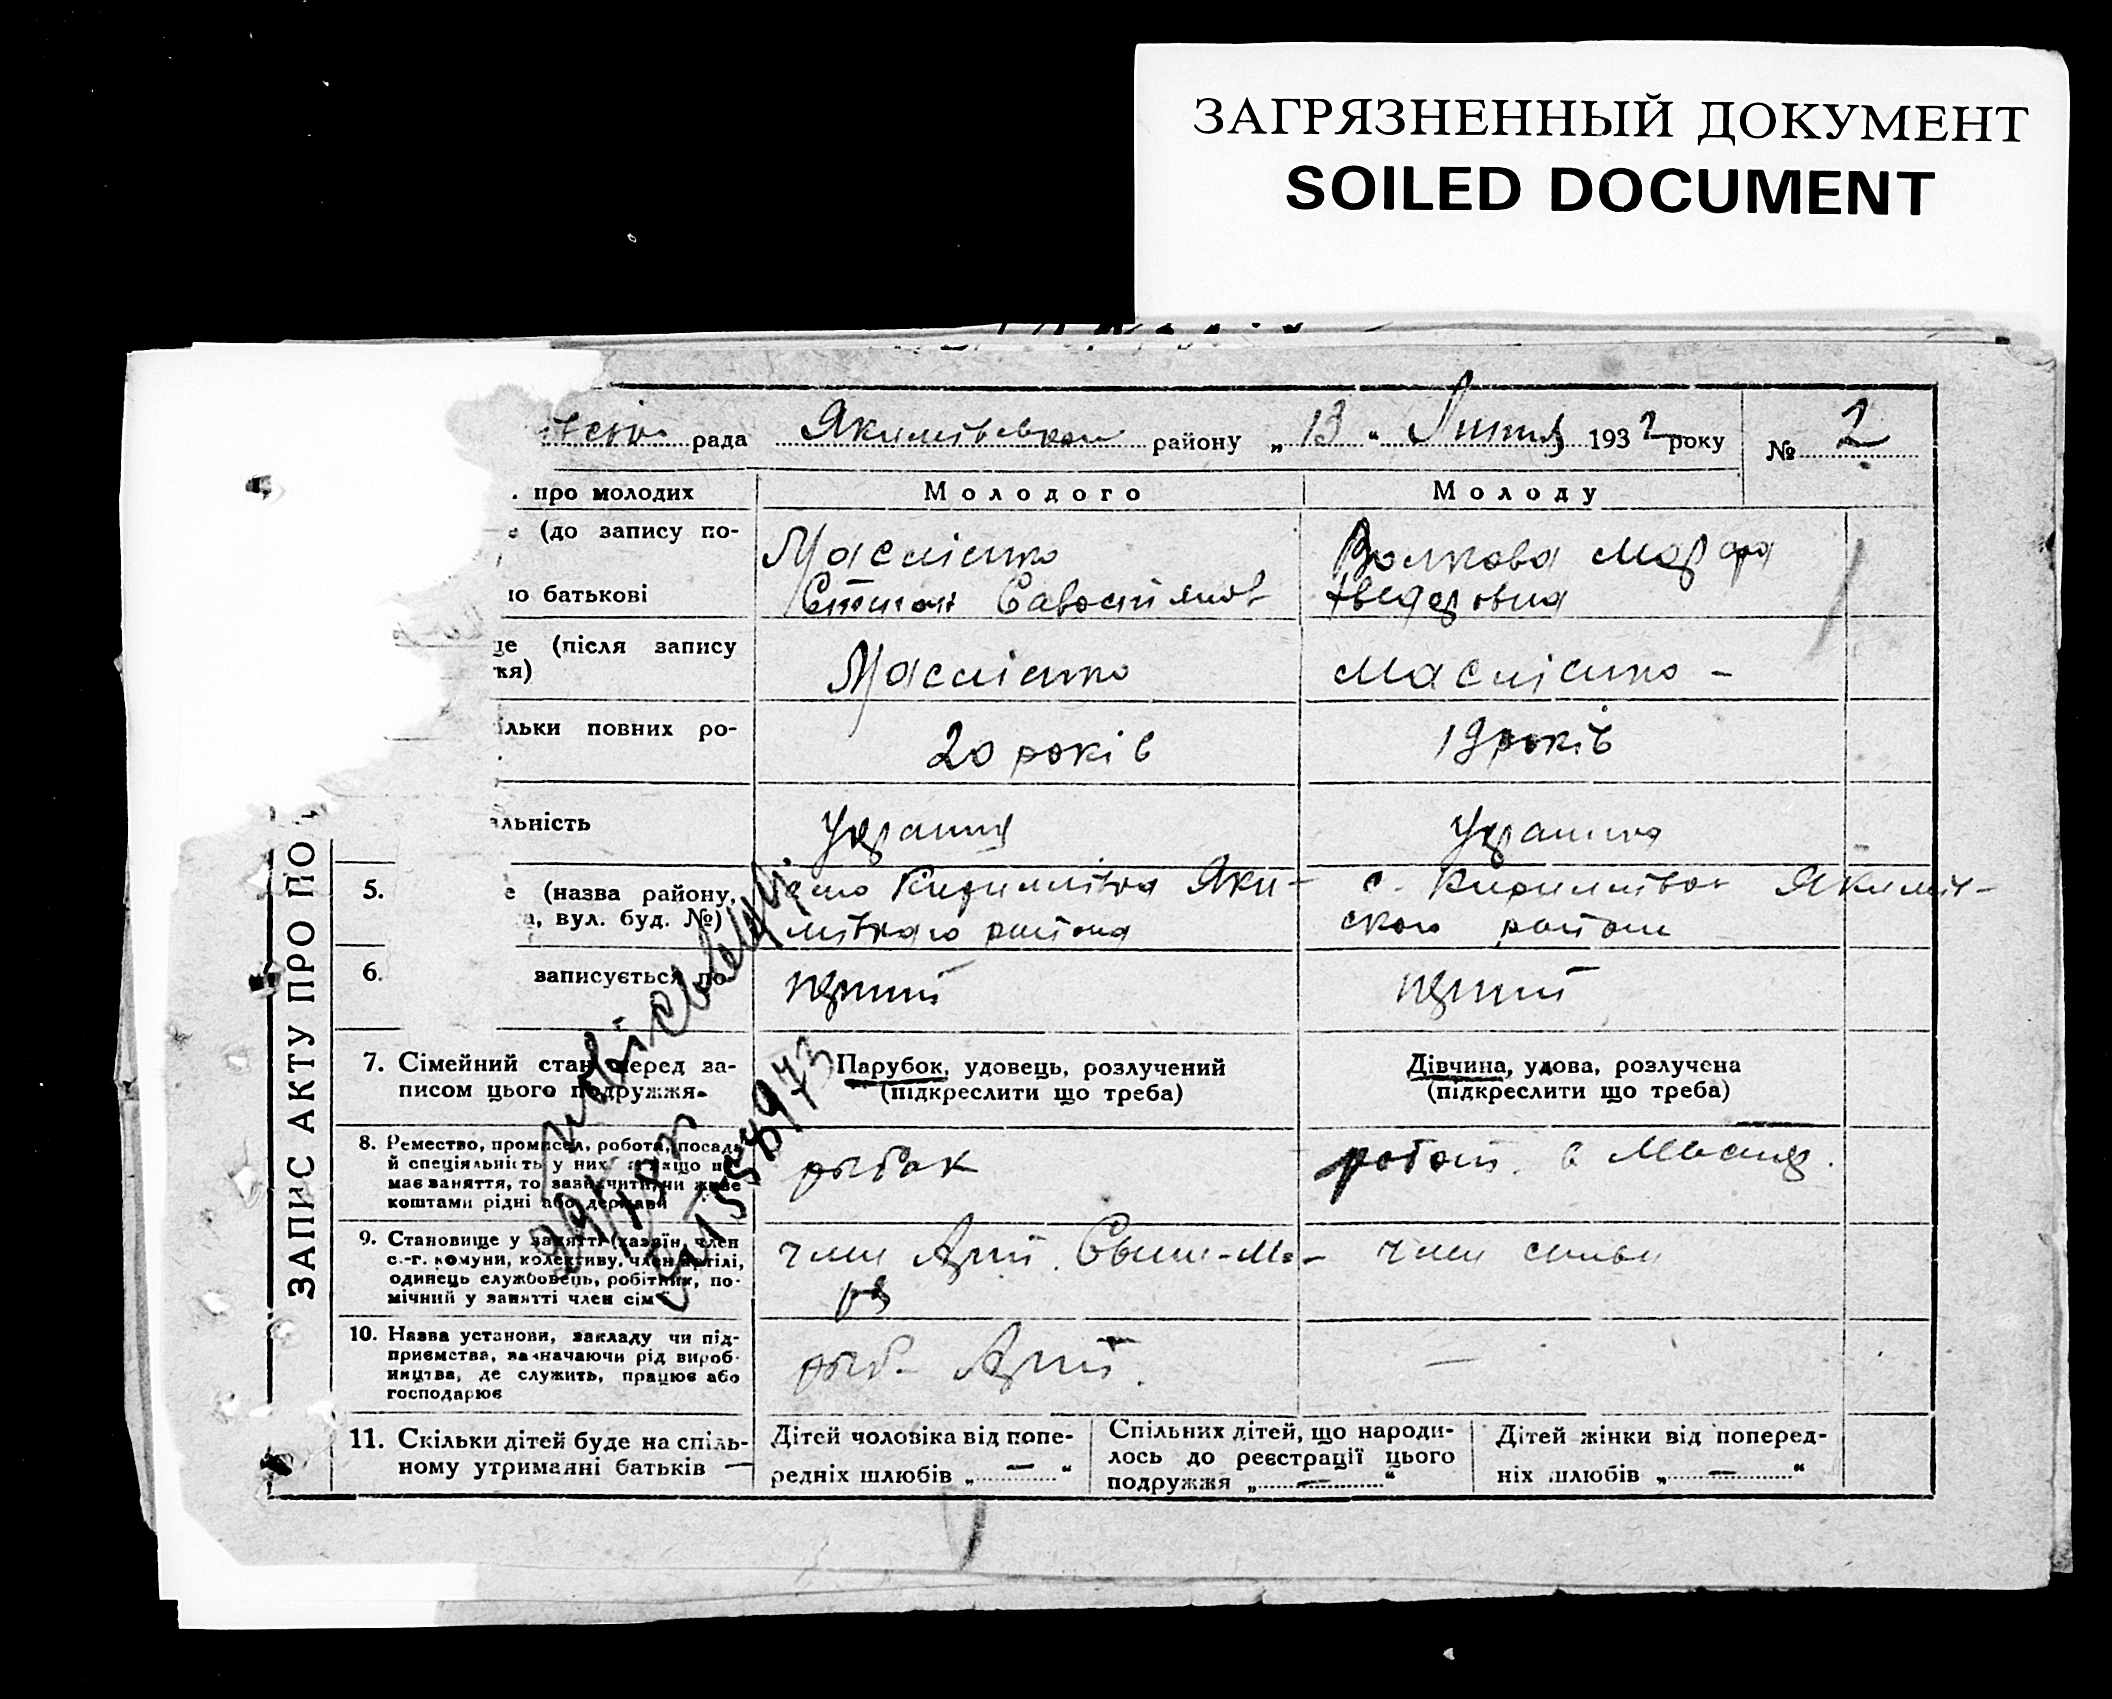 ЗАГРЯЗНЕННЫЙ ДОКУМЕНТ
SOILED DOCUMENT
рада Якимівської району „ 13 “ 1932 року № 2
про молодих Молодого Молоду
(до запису по-
батькові
Масліенко Волкова Марфа
Степан Савостіянов Хведоровна
(після запису
Масліенко Маслієнко –
повних ро-
20 років 19 років
Украинц Украинка
5. (назва району,
вул. буд. №)
село Кирилівка Яки-
мівкаго района
с. Кирилівка Якимів-
ского района
6. записується по-
першій першій
7. Сімейний стан перед за-
писом цього подружжя
Парубок, удовець, розлучений
(підкреслити що треба)
Дівчина, удова, розлучена
(підкреслити що треба)
8. Ремество, промисел, робота, посада
й спеціяльність у них, а якщо не
має заняття, то зазначити, чи живе
коштами рідні або держави
рыбак робот. в
9. Становище у занятті (хазяїн, член
с.-г. комуни, колективу, член артілі,
одинець службовець, робітник, по-
мічний у занятті член сім'ї
член Арт. член
10. Назва установи, закладу чи під-
приємства, зазначаючи рід вироб-
ництва, де служить, працює або
господарює
рыб. Арті. —
11. Скільки дітей буде на спіль-
ному утриманні батьків —
Дітей чоловіка від попе-
редніх шлюбів „ — “
Спільних дітей, що народи-
лось до реєстрації цього
подружжя „ — “
Дітей жінки від поперед-
ніх шлюбів „ — “
ЗАПИС АКТУ ПРО ПО